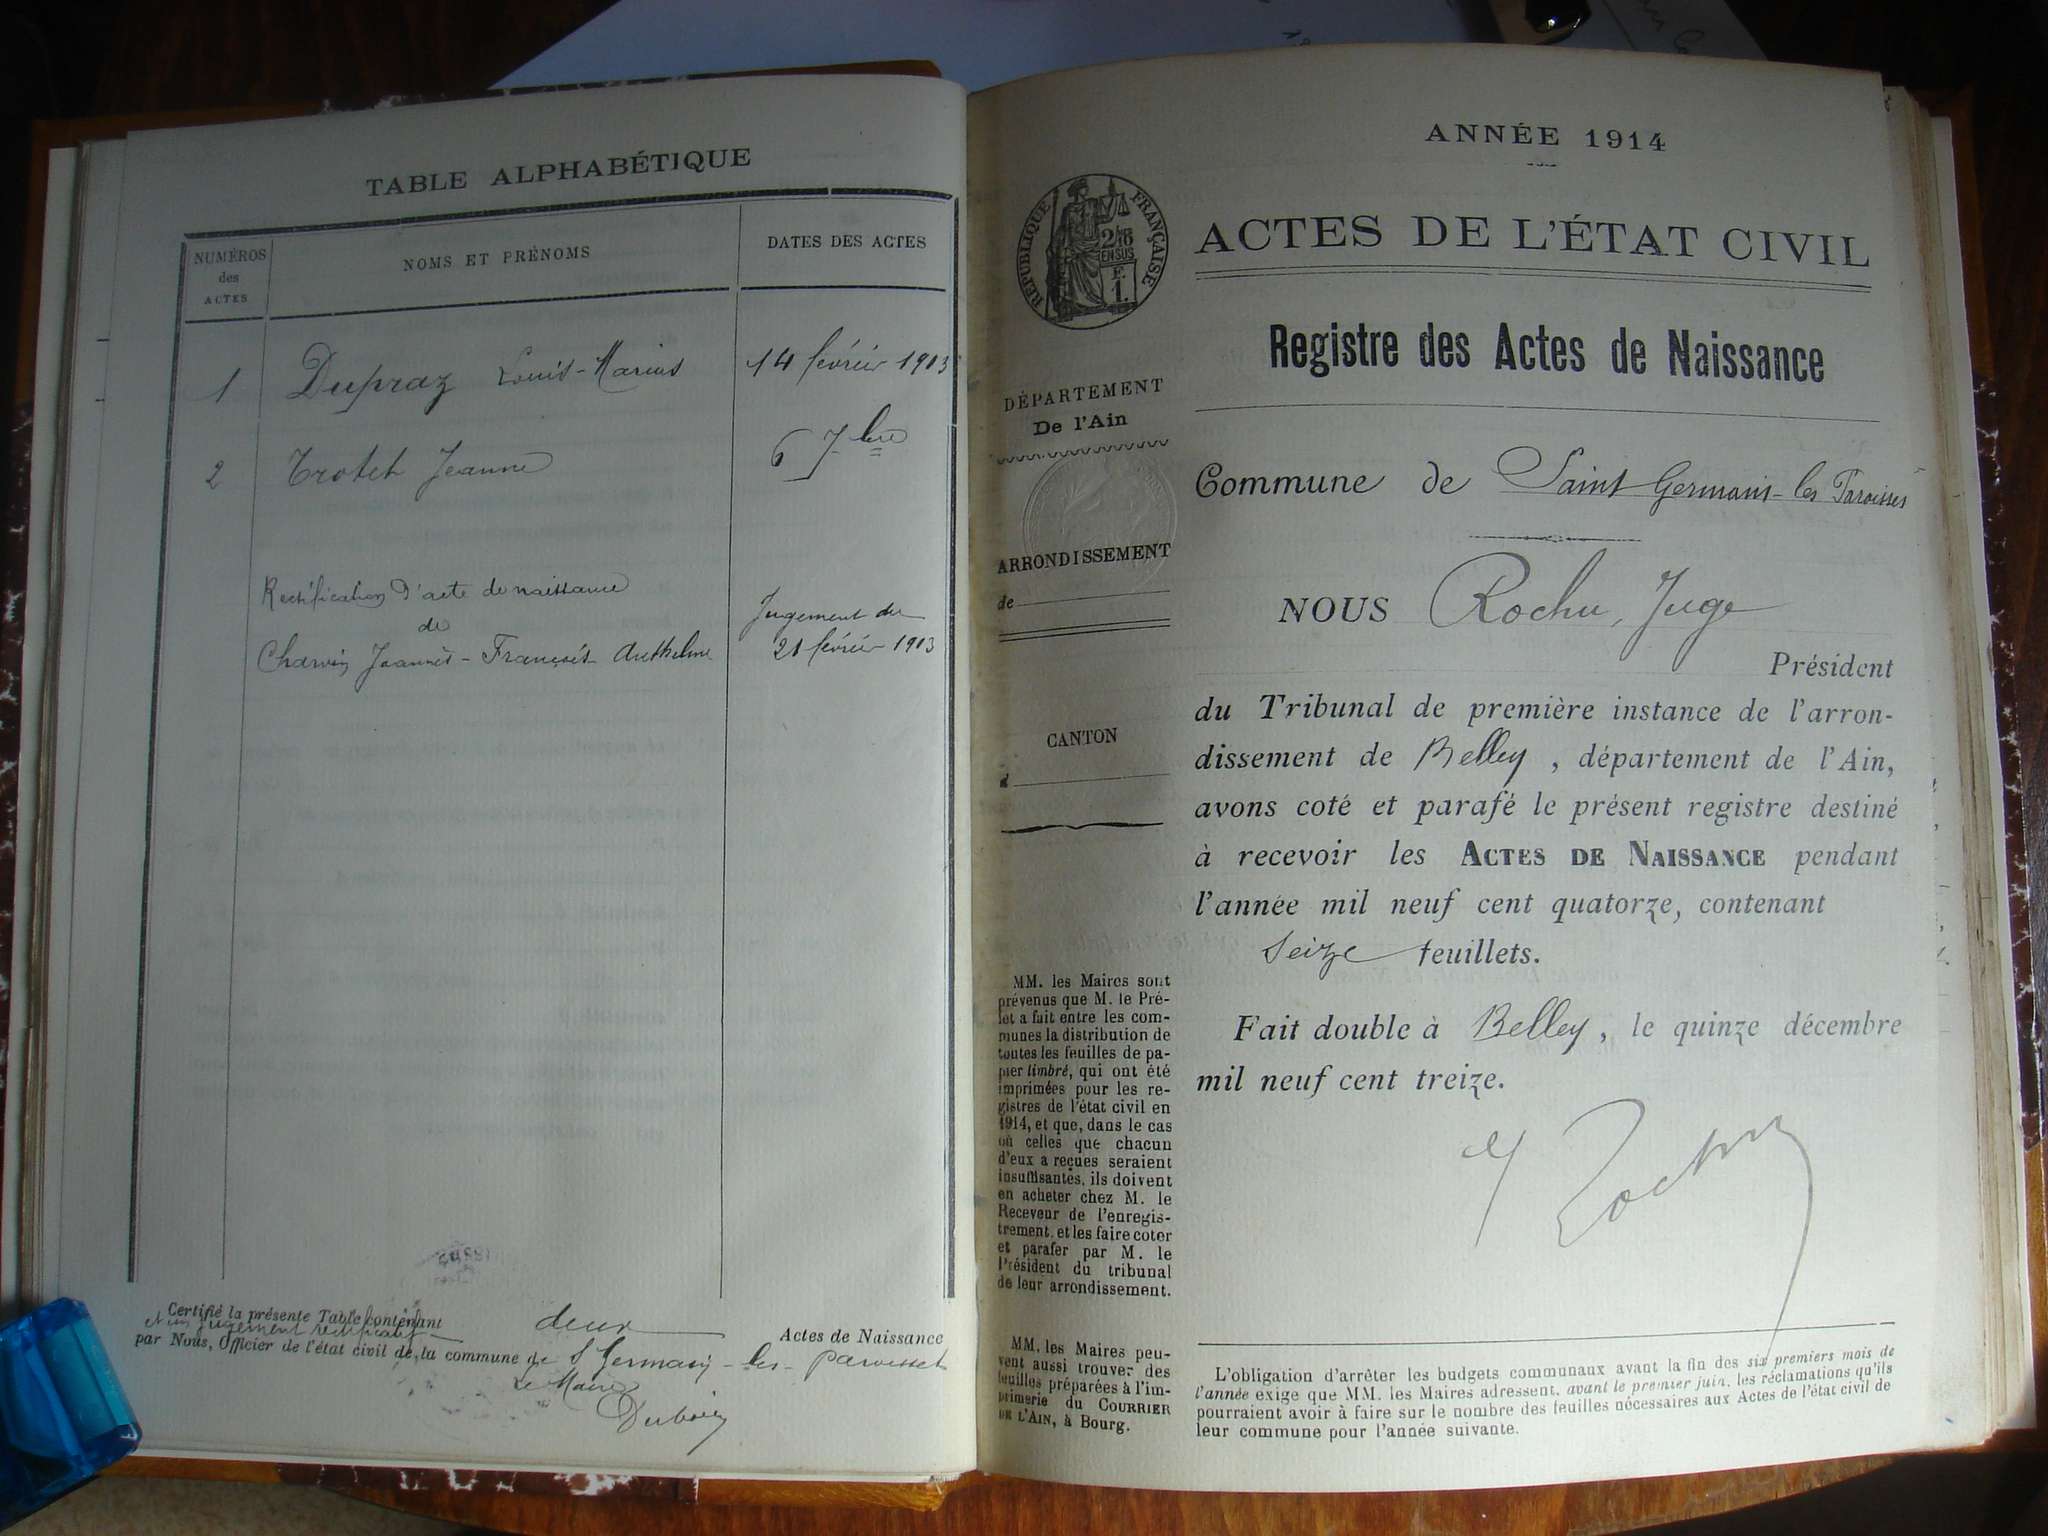 TABLE ALPHABÉTIQUE
NUMÉROS
des
ACTES
NOMS ET PRÉNOMS
DATES DES ACTES
1 Dupraz Louis-Marius 14 février 1913
2 Jeanne 6 7bre
Rectification d'acte de naissance
de
Jugement du
Joannès-François Anthelme 21 février 1913
Certifié la présente Table contenant deux Actes de Naissance
et un jugement rectificatif
par Nous, Officier de l'état civil de la commune de St Germain-les-paroisses
Le Maire
ANNÉE 1914
RÉPUBLIQUE FRANÇAISE
EN SUS
F.
1.
ACTES DE L'ÉTAT CIVIL
Registre des Actes de Naissance
DÉPARTEMENT
De l'Ain
ARRONDISSEMENT
de
CANTON
d
MM. les Maires sont
prévenus que M. le Pré-
fet a fait entre les com-
munes la distribution de
toutes les feuilles de pa-
pier timbré, qui ont été
imprimées pour les re-
gistres de l'état civil en
1914, et que, dans le cas
où celles que chacun
d'eux a reçues seraient
insuffisantes, ils doivent
en acheter chez M. le
Receveur de l'enregis-
trement, et les faire coter
et parafer par M. le
Président du tribunal
de leur arrondissement.
MM. les Maires peu-
vent aussi trouver des
feuilles préparées à l'im-
primerie du COURRIER
DE L'AIN, à Bourg.
Commune de Saint Germain-les Paroisses
NOUS Rochu, Juge
Président
du Tribunal de première instance de l'arron-
dissement de Belley, département de l'Ain,
avons coté et parafé le présent registre destiné
à recevoir les ACTES DE NAISSANCE pendant
l'année mil neuf cent quatorze, contenant
seize feuillets.
Fait double à Belley, le quinze décembre
mil neuf cent treize.
L'obligation d'arrêter les budgets communaux avant la fin des six premiers mois de
l'année exige que MM. les Maires adressent, avant le premier juin, les réclamations qu'ils
pourraient avoir à faire sur le nombre des feuilles nécessaires aux Actes de l'état civil de
leur commune pour l'année suivante.